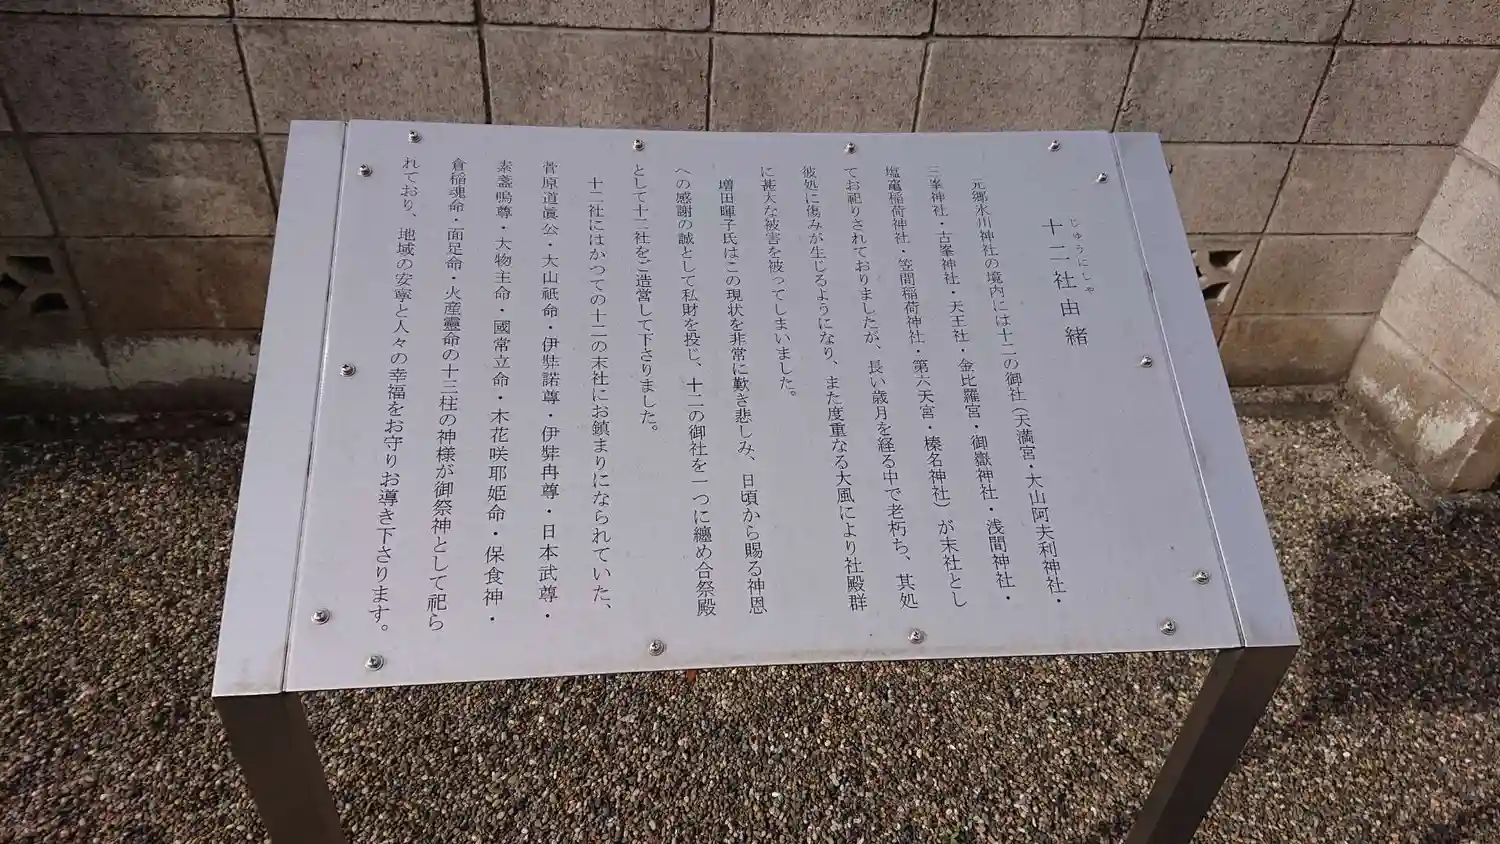 じゅうにしゃ
十二社由緒
元郷氷川神社の境内には十二の御社（天満宮・大山阿夫利神社・
三峯神社・古峯神社・天王社・金比羅宮・御嶽神社・浅間神社・
塩竈稲荷神社・笠間稲荷神社・第六天宮・榛名神社）が末社とし
てお祀りされておりましたが、長い歳月を経る中で老朽ち、其処
彼処に傷みが生じるようになり、また度重なる大風により社殿群
に甚大な被害を被ってしまいました。
増田暉子氏はこの現状を非常に歎き悲しみ、日頃から賜る神恩
への感謝の誠として私財を投じ、十二の御社を一つに纏め合祭殿
として十二社をご造営して下さりました。
十二社にはかつての十二の末社にお鎮まりになられていた、
菅原道眞公・大山祇命・伊弉諾尊・伊弉冉尊・日本武尊・
素盞嗚尊・大物主命・國常立命・木花咲耶姫命・保食神・
倉稲魂命・面足命・火産靈命の十三柱の神様が御祭神として祀ら
れており、地域の安寧と人々の幸福をお守りお導き下さります。